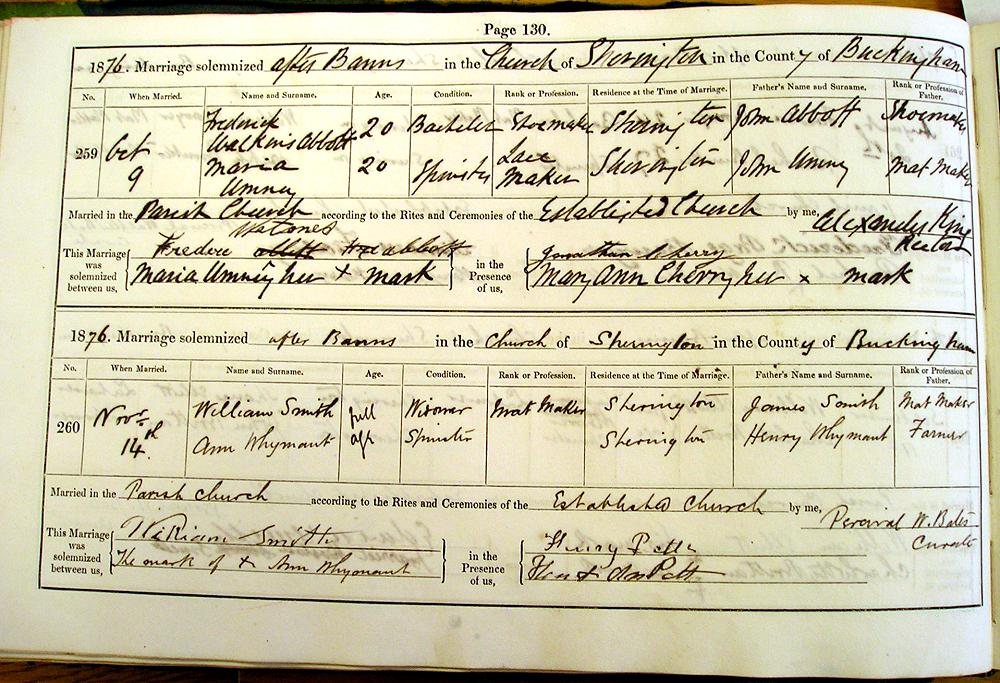 Page 130.
1876. Marriage solemnized after Banns in the Church of Sherington in the County of Buckingham
No. When Married. Name and Surname. Age. Condition. Rank or Profession. Residence at the Time of Marriage. Father's Name and Surname. Rank or Profession of Father.
259 Oct 9 Frederick Watkins Abbott 20 Bachelor Shoemaker Sherington John Abbott Shoemaker
Maria Amney 20 Spinster Lace Maker Sherington John Amney Mat Maker
Married in the Parish Church according to the Rites and Ceremonies of the Established Church by me, Alexander King Rector
This Marriage was solemnized between us, Frederic Abbott in the Presence of us, Jonathan Cherry
Maria Amney her x mark Mary Ann Cherry her x mark
1876. Marriage solemnized after Banns in the Church of Sherington in the County of Buckingham
No. When Married. Name and Surname. Age. Condition. Rank or Profession. Residence at the Time of Marriage. Father's Name and Surname. Rank or Profession of Father.
260 Novr 14th William Smith full age Widower Mat Maker Sherington James Smith Mat Maker
Ann Whymant Spinster Sherington Henry Whymant Farmer
Married in the Parish church according to the Rites and Ceremonies of the Established church by me, Percival W. Bates Curate
This Marriage was solemnized between us, William Smith in the Presence of us, Henry Pettt
The mark of x Ann Whymant